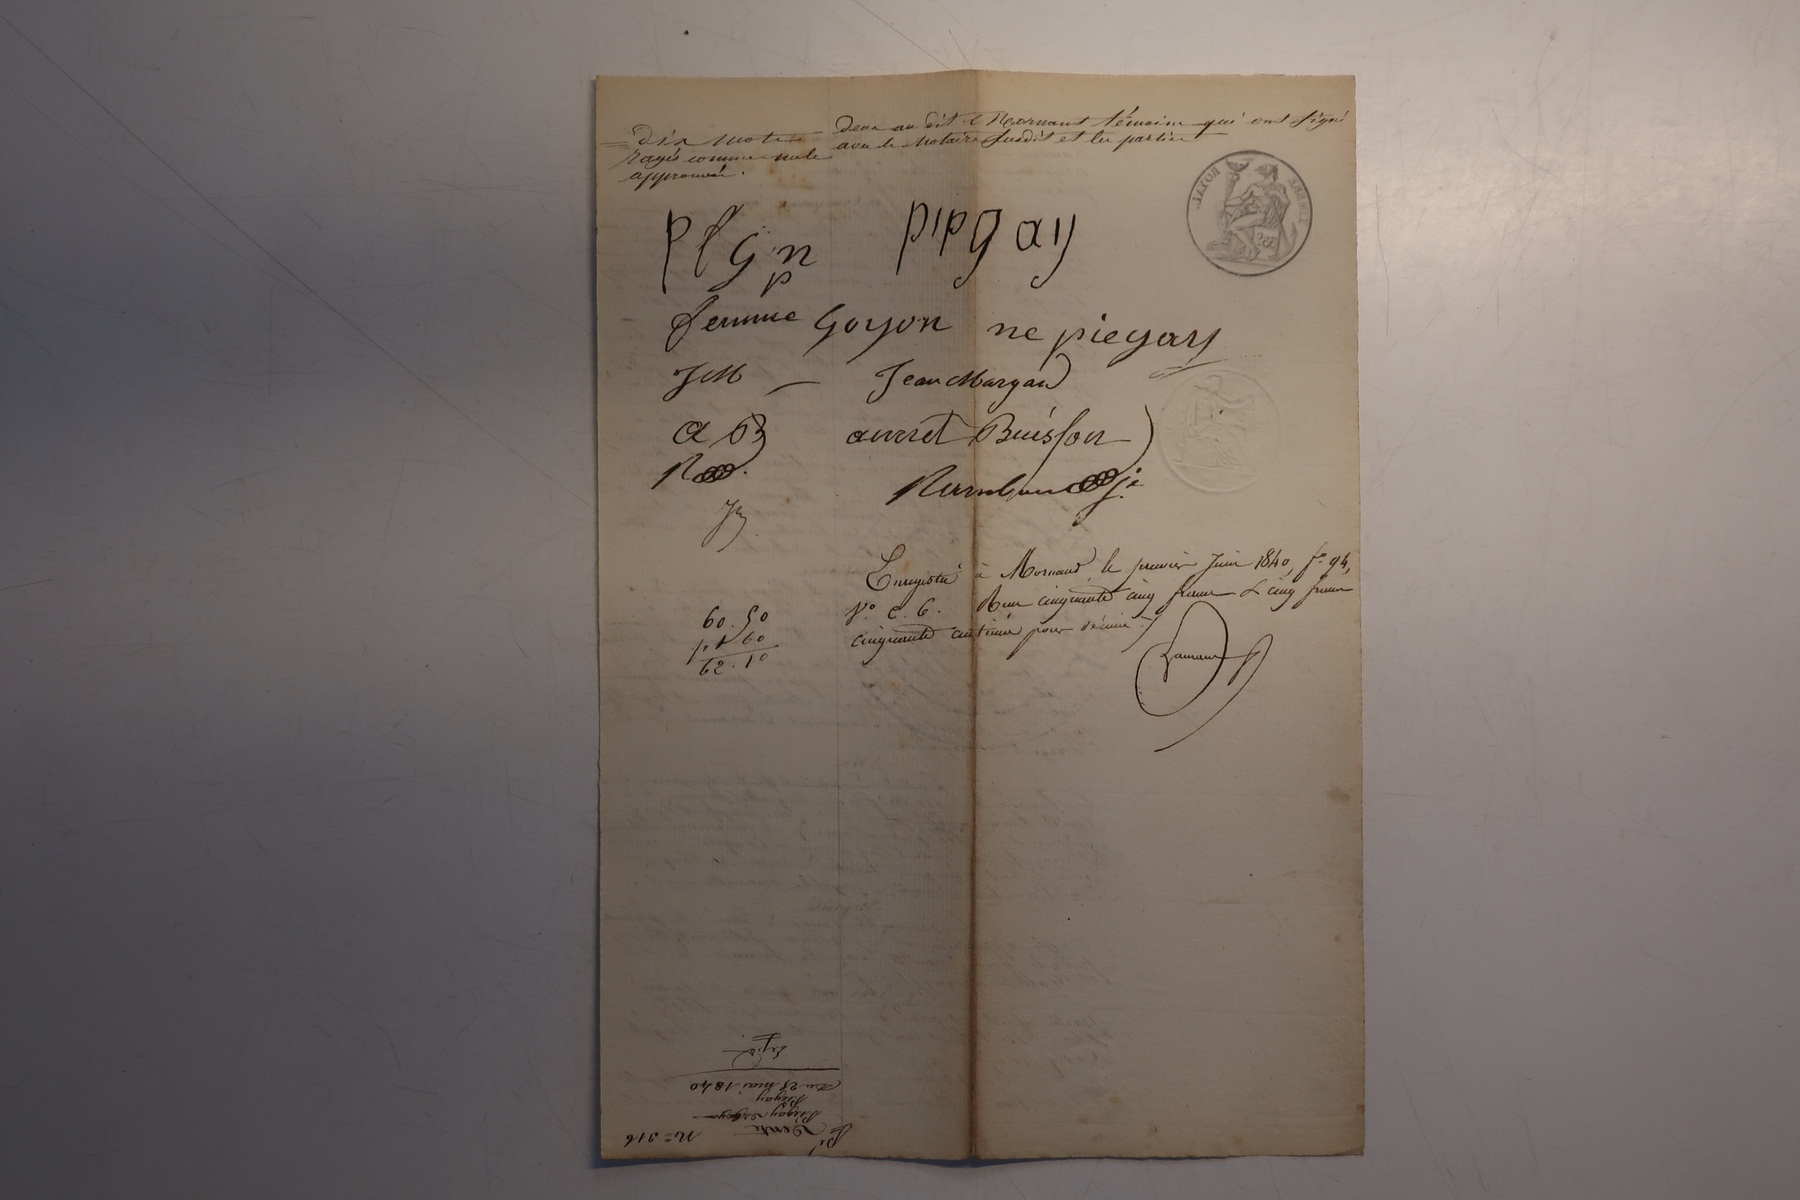 deux au dit Mornant témoins qui ont signé
avec le Notaire susdit et les parties
Dix mots
rayés comme nuls
approuvés.
PlGn p pipgay
femme Goyon ne piegay
JM Jean Margand
a B Buisson
R
Enregistré à Mornant le premier Juin 1840, fo 94,
Vo c. 6. Reçu cinquante cinq francs & cinq francs
cinquante centimes pour décime.
60.50
1.60
62.10
No 316
Vente
Piegay
Piegay
Du 28 mai 1840